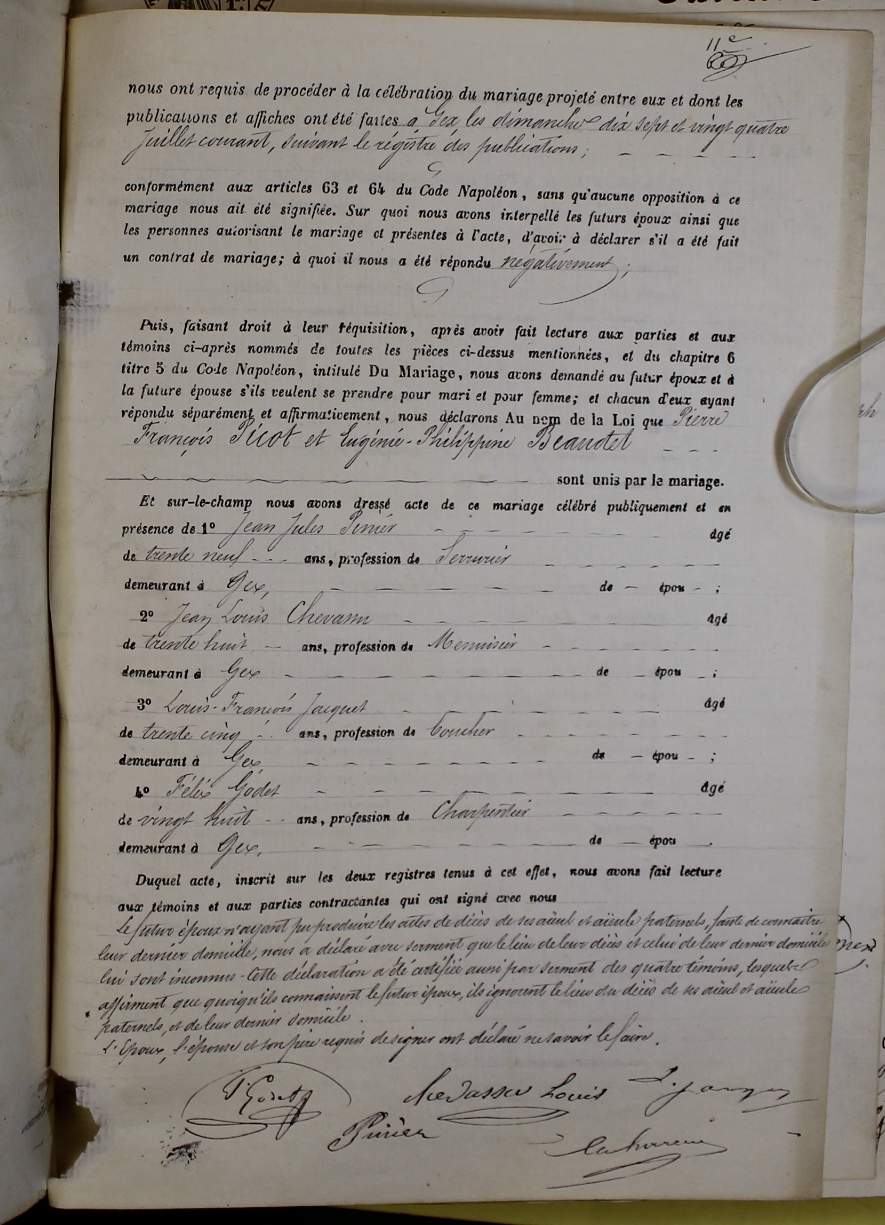 11e
nous ont requis de procéder à la célébration du mariage projeté entre eux et dont les
publications et affiches ont été faites a Gex les dimanches dix sept et vingt quatre
Juillet courant, suivant le régistre des publications;
conformément aux articles 63 et 64 du Code Napoléon, sans qu'aucune opposition à ce
mariage nous ait été signifiée. Sur quoi nous avons interpellé les futurs époux ainsi que
les personnes autorisant le mariage et présentes à l'acte, d'avoir à déclarer s'il a été fait
un contrat de mariage; à quoi il nous a été répondu négativement;
Puis, faisant droit à leur réquisition, après avoir fait lecture aux parties et aux
témoins ci-après nommés de toutes les pièces ci-dessus mentionnées, et du chapitre 6
titre 5 du Code Napoléon, intitulé Du Mariage, nous avons demandé au futur époux et à
la future épouse s'ils veulent se prendre pour mari et pour femme; et chacun d'eux ayant
répondu séparément et affirmativement, nous déclarons Au nom de la Loi que Pierre
François Picot et Eugénie-Philippine Beaudet
sont unis par le mariage.
Et sur-le-champ nous avons dressé acte de ce mariage célébré publiquement et en
présence de 1º Jean Jules Pinier âgé
de trente neuf ans, profession de Serrurier
demeurant à Gex, de — épou — ;
2º Jean Louis Chevassu âgé
de trente huit ans, profession de Menuisier
demeurant à Gex de — épou — ;
3º Louis-François Jacquet âgé
de trente cinq ans, profession de boucher
demeurant à Gex de — épou — ;
4º Félix Godet âgé
de vingt huit ans, profession de Charpentier
demeurant à Gex. de — épou .
Duquel acte, inscrit sur les deux registres tenus à cet effet, nous avons fait lecture
aux témoins et aux parties contractantes qui ont signé avec nous
Le futur époux n'ayant pu produire les actes de décès de ses aïeul et aïeule paternels, faute de connaitre
leur dernier domicile, nous a déclaré avec serment que le lieu de leur décès et celui de leur dernier domicile
lui sont inconnus - cette déclaration a été certifiée aussi par serment des quatre témoins, lesquels
affirment que quoiqu'ils connaissent le futur époux, ils ignorent le lieu du décès de ses aïeul et aïeule
paternels, et de leur dernier domicile.
L'Epoux, l'épouse et son père requis de signer ont déclaré ne savoir le faire.
Chevassu Louis
Pinier